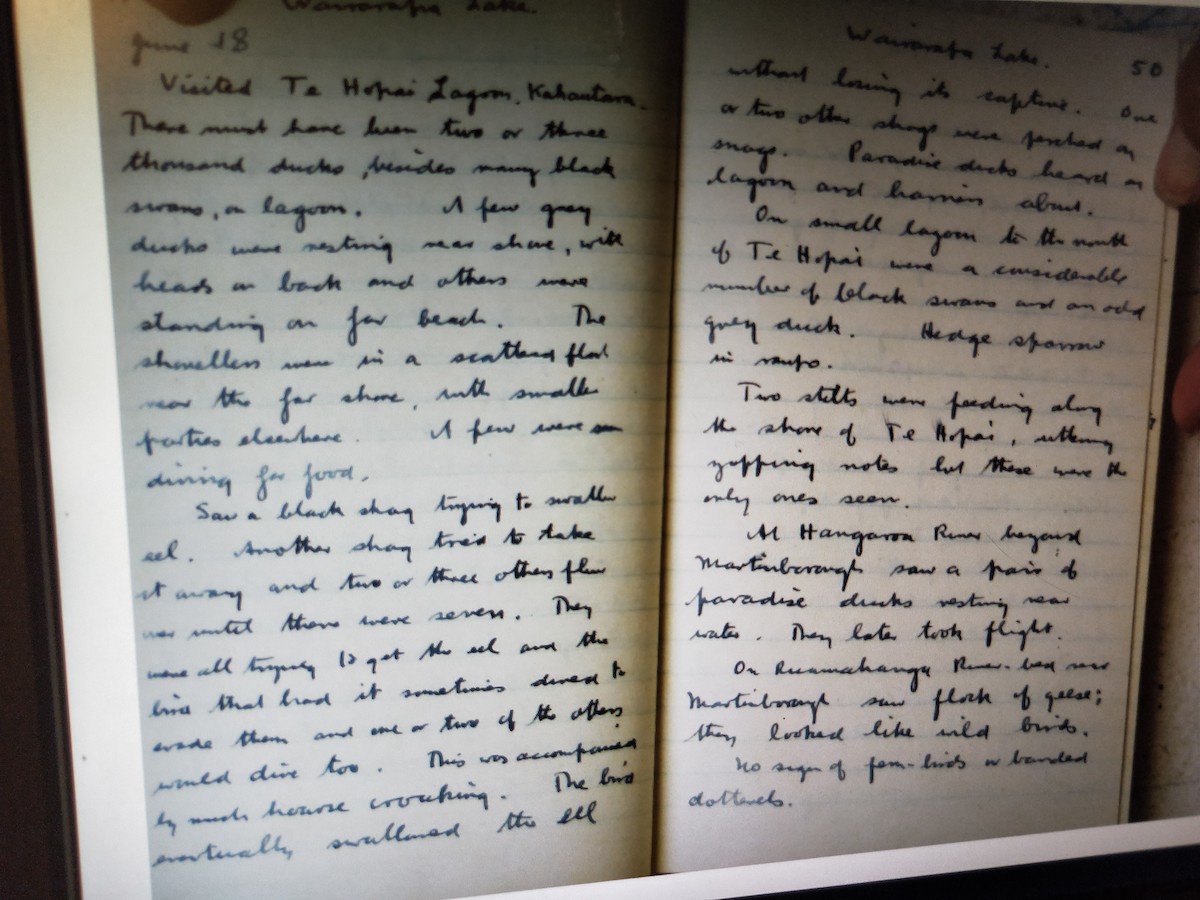 Wairarapa Lake.
June 18
Visited Te Hopai Lagoon, Kahautara.
There must have been two or three
thousand ducks, besides many black
swans, on lagoon. A few grey
ducks were resting near shore, with
heads on back and others were
standing on far beach. The
shovellers were in a scattered flock
near the far shore, with smaller
parties elsewhere. A few were
diving for food.
Saw a black shag trying to swallow
eel. Another shag tried to take
it away and two or three others flew
over until there were seven. They
were all trying to get the eel and the
bird that had it sometimes dived to
evade them and one or two of the others
would dive too. This was accompanied
by much hoarse croaking. The bird
eventually swallowed the eel
Wairarapa Lake. 50
without losing its capture. One
or two other shags were perched on
snags. Paradise ducks heard on
lagoon and harriers about.
On small lagoon to the north
of Te Hopai were a considerable
number of black swans and an odd
grey duck. Hedge sparrow
in raupo.
Two stilts were feeding along
the shore of Te Hopai, uttering
yapping notes but these were the
only ones seen.
At Hangaroa River beyond
Martinborough saw a pair of
paradise ducks resting near
water. They later took flight.
On Ruamahanga River-bed near
Martinborough saw flock of geese;
they looked like wild birds.
No sign of fern-birds or banded
dotterels.